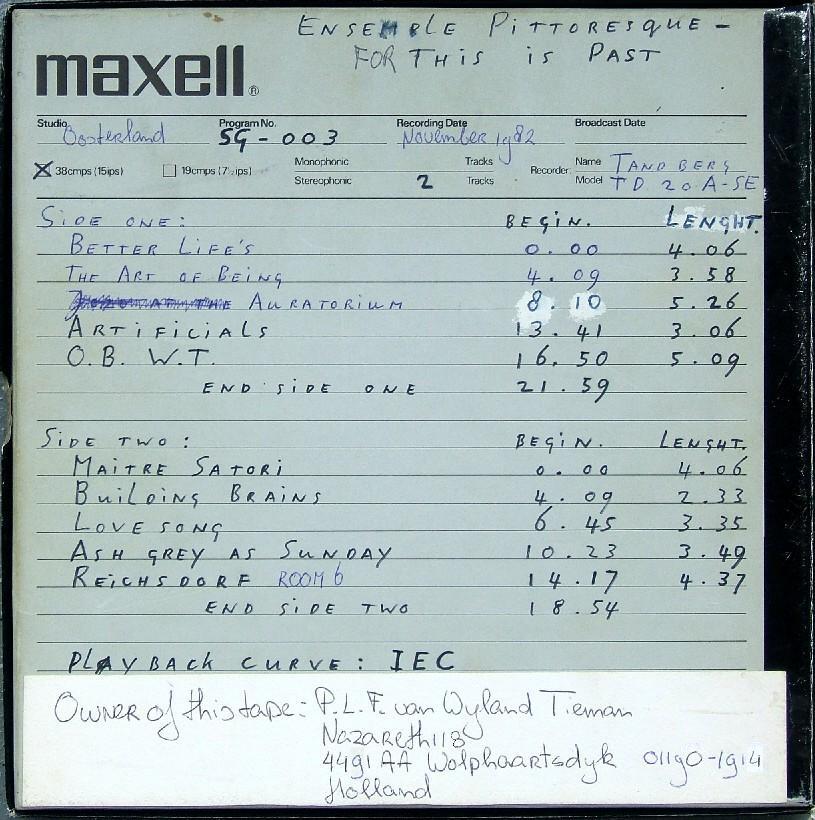 ENSEMBLE PITTORESQUE -
FOR THIS IS PAST
maxell®
Studio Oosterland Program No. SG-003 Recording Date November 1982 Broadcast Date
38cmps (15ips) 19cmps (7½ips) Monophonic Tracks Recorder: Name TANDBERG
Stereophonic 2 Tracks Model TD 20 A-SE
SIDE ONE: BEGIN. LENGHT.
BETTER LIFE'S 0.00 4.06
THE ART OF BEING 4.09 3.58
AURATORIUM 8.10 5.26
ARTIFICIALS 13.41 3.06
O.B. W.T. 16.50 5.09
END SIDE ONE 21.59
SIDE TWO: BEGIN. LENGHT.
MAITRE SATORI 0.00 4.06
BUILDING BRAINS 4.09 2.33
LOVE SONG 6.45 3.35
ASH GREY AS SUNDAY 10.23 3.49
REICHSDORF ROOM 6 14.17 4.37
END SIDE TWO 18.54
PLAYBACK CURVE: IEC
Owner of this tape: P.L.F. van Wyland Tieman
Nazareth 113
4491 AA Wolphaartsdyk 01190-1914
Holland